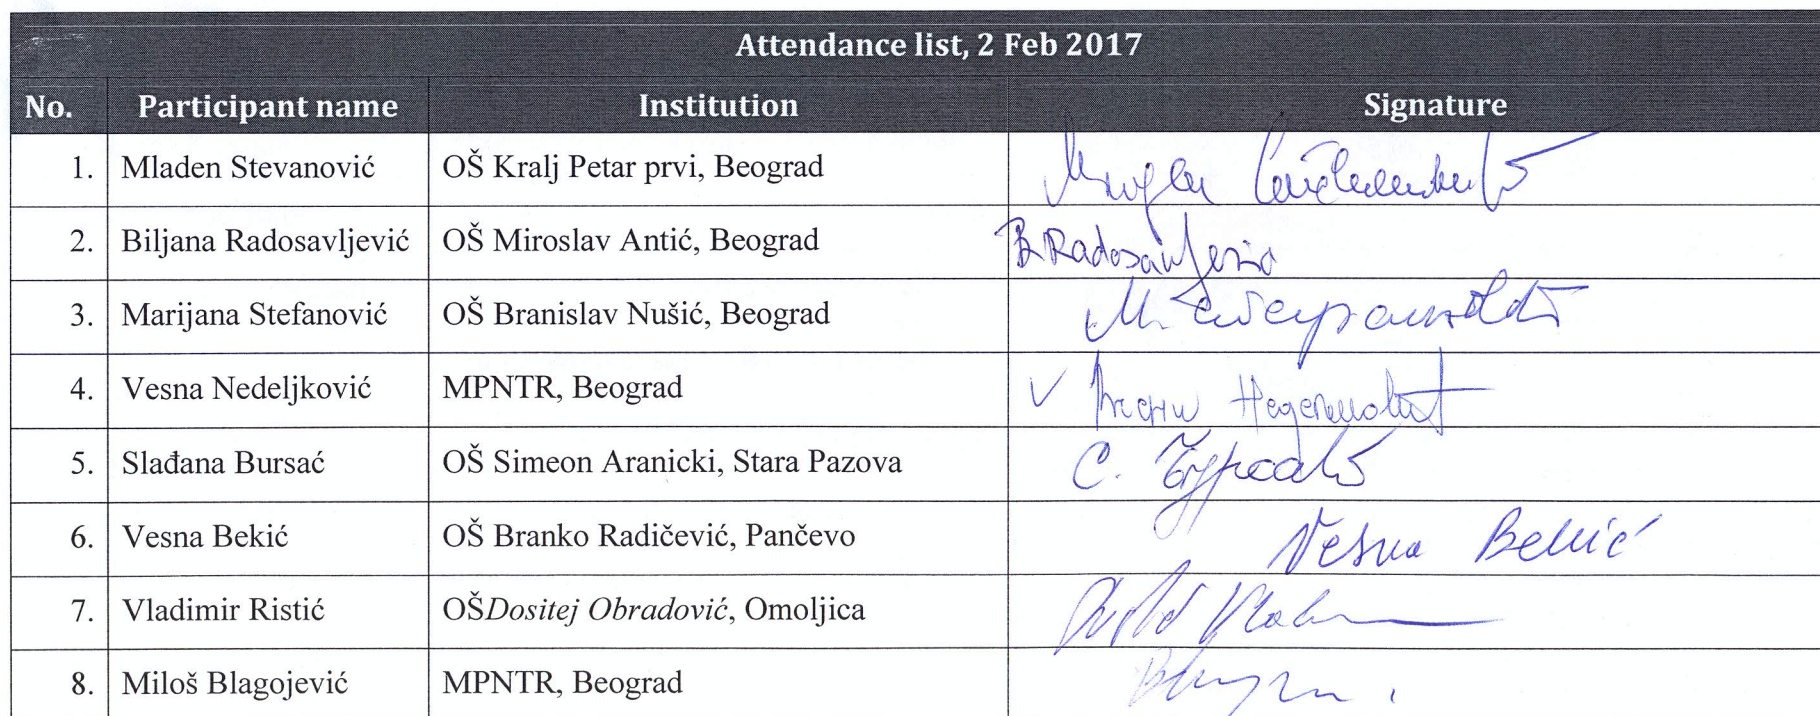 Attendance list, 2 Feb 2017
No. Participant name Institution Signature
1. Mladen Stevanović OŠ Kralj Petar prvi, Beograd
2. Biljana Radosavljević OŠ Miroslav Antić, Beograd B Radosavljević
3. Marijana Stefanović OŠ Branislav Nušić, Beograd
4. Vesna Nedeljković MPNTR, Beograd
5. Slađana Bursać OŠ Simeon Aranicki, Stara Pazova С. Бурсаћ
6. Vesna Bekić OŠ Branko Radičević, Pančevo Vesna Bekić
7. Vladimir Ristić OŠDositej Obradović, Omoljica
8. Miloš Blagojević MPNTR, Beograd